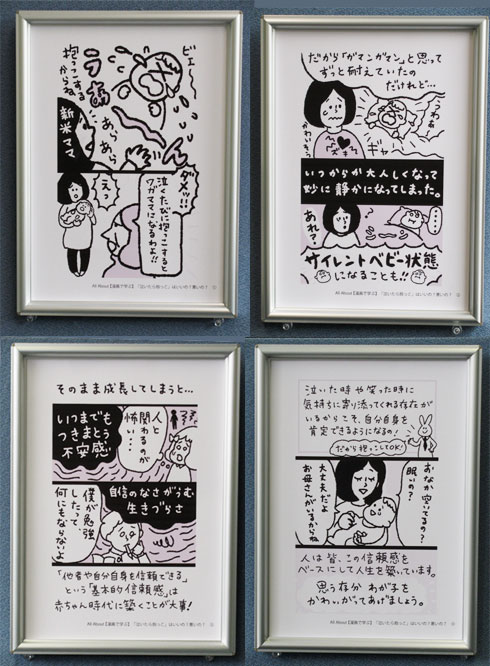 ビェ〜
うああ
抱っこする
からね
新米ママ
あら
あら
ダメッ!!
えっ
泣くたびに抱っこすると
ワガママになるわよ!!
All About【漫画で学ぶ】「泣いたら抱っこ」はいいの?悪いの? ①
だから「ガマンガマン」と思って
ずっと耐えていたの
だけれど…
うわぁー
ギャー
かわいそう
ズキン
いつからか大人しくなって
妙に静かになってしまった。
あれ?
……
サイレントベビー状態
になることも!!
All About【漫画で学ぶ】「泣いたら抱っこ」はいいの?悪いの? ②
そのまま成長してしまうと…
いつまでも
つきまとう
不安感
人と
関わるのが
怖い…
自信のなさがうむ
生きづらさ
僕が勉強
したって
何にもならないよ
「他者や自分自身を信頼できる」
という「基本的信頼感」は
赤ちゃん時代に築くことが大事!
All About【漫画で学ぶ】「泣いたら抱っこ」はいいの?悪いの? ③
泣いた時や笑った時に
気持ちに寄り添ってくれる存在が
いるからこそ、自分自身を
肯定できるようになるの!
だから抱っこしてOK!
おなか空いてるの?
眠いの?
大丈夫だよ
お母さんがいるからね
人は皆、この信頼感を
ベースにして人生を築いています。
思う存分 わが子を
かわいがってあげましょう。
All About【漫画で学ぶ】「泣いたら抱っこ」はいいの?悪いの? ④